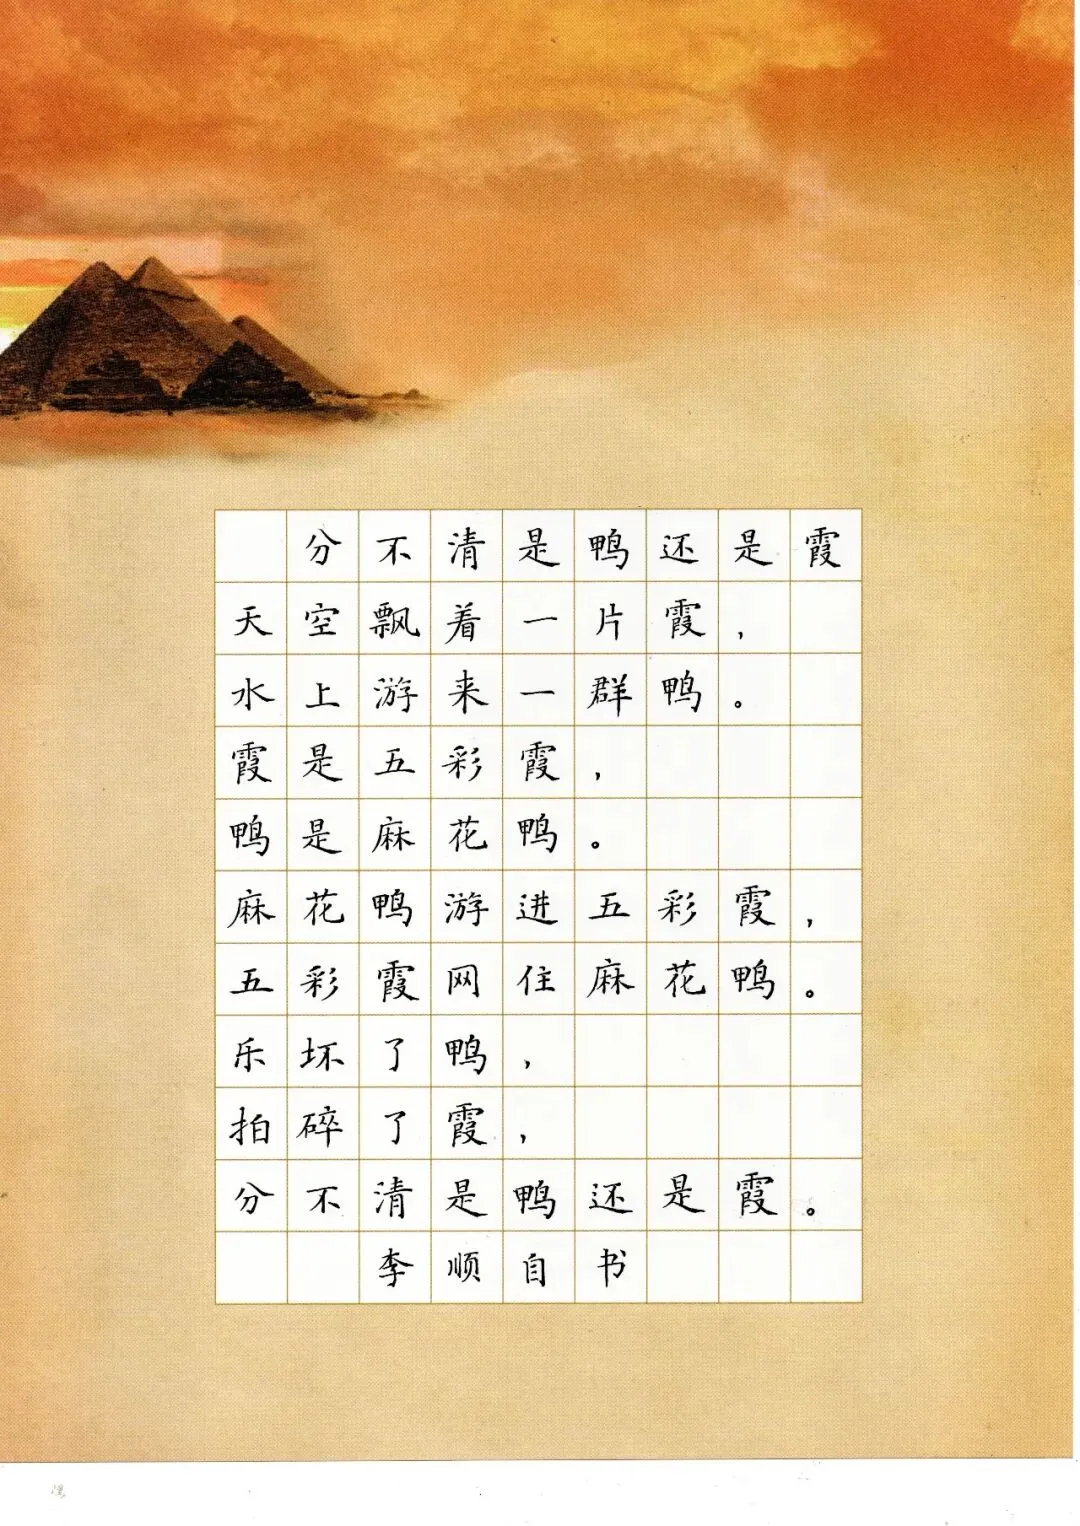 分不清是鸭还是霞
天空飘着一片霞，
水上游来一群鸭。
霞是五彩霞，
鸭是麻花鸭。
麻花鸭游进五彩霞，
五彩霞网住麻花鸭。
乐坏了鸭，
拍碎了霞，
分不清是鸭还是霞。
李顺自书